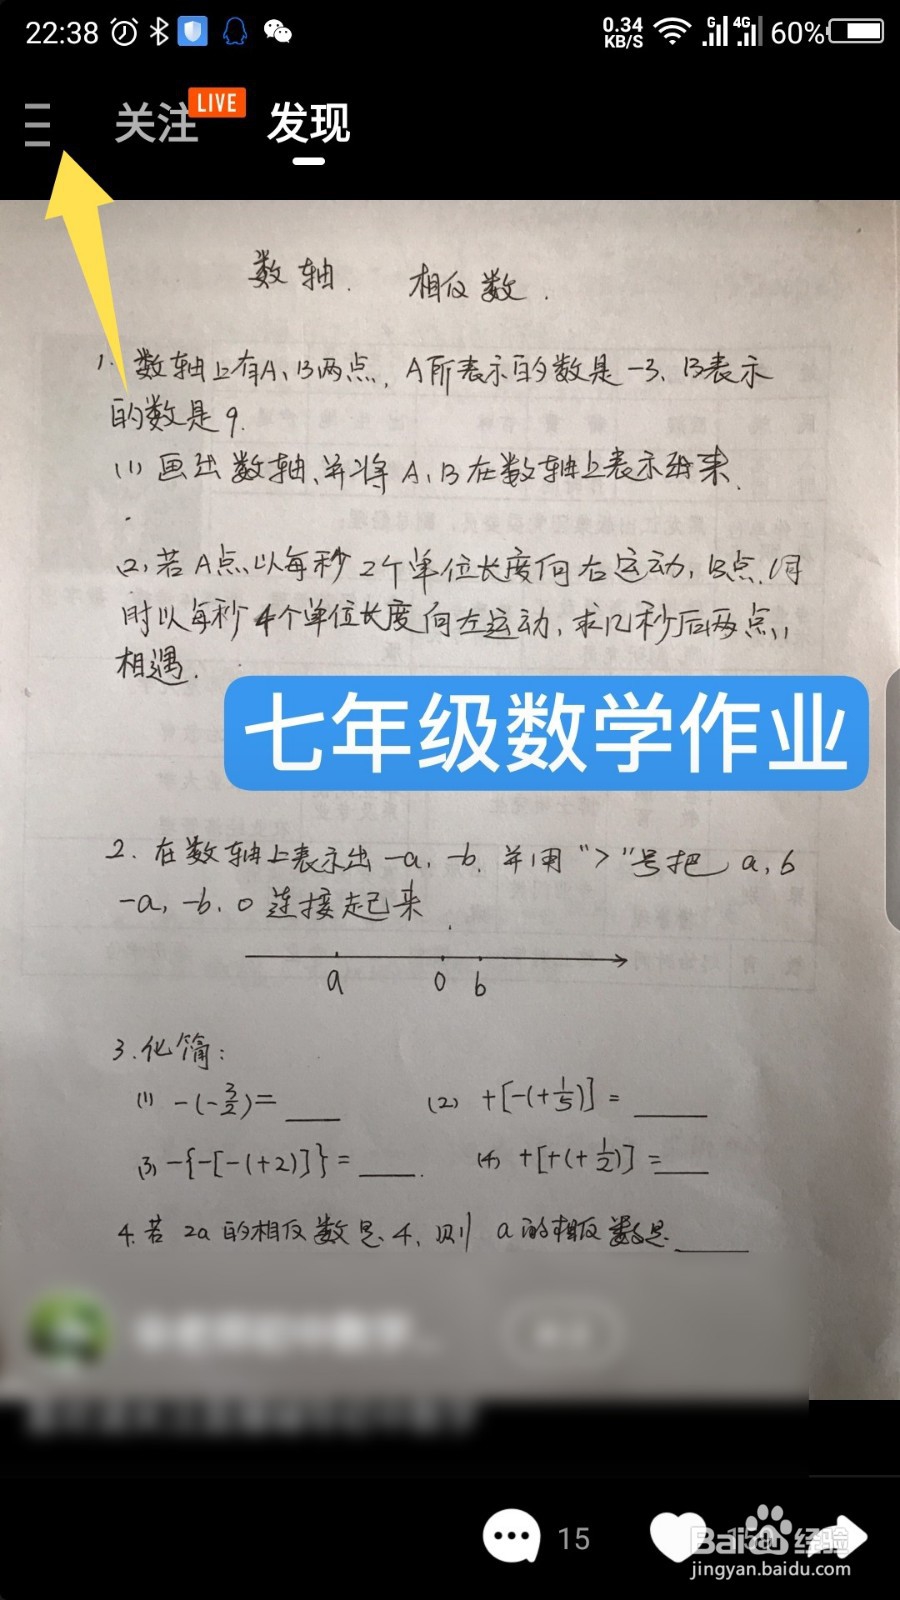 22:38
0.34
KB/S
G
4G
60%
关注
LIVE
发现
数轴. 相反数.
1. 数轴上有A、B两点, A所表示的数是-3、B表示
的数是9.
(1) 画出数轴、并将A、B在数轴上表示出来.
(2) 若A点以每秒2个单位长度向右运动, B点同
时以每秒4个单位长度向左运动, 求几秒后两点
相遇.
七年级数学作业
2. 在数轴上表示出-a, -b, 并用">"号把a, b
-a, -b, 0连接起来
a 0 b
3. 化简:
(1) -(-3/2)= ____ (2) +[-(+1/5)] = ____
(3) -{-[-(+2)]} = ____. (4) +[+(+1/2)] = ____
4. 若2a的相反数是4、则a的相反数是____
15
Baidu经验
jingyan.baidu.com